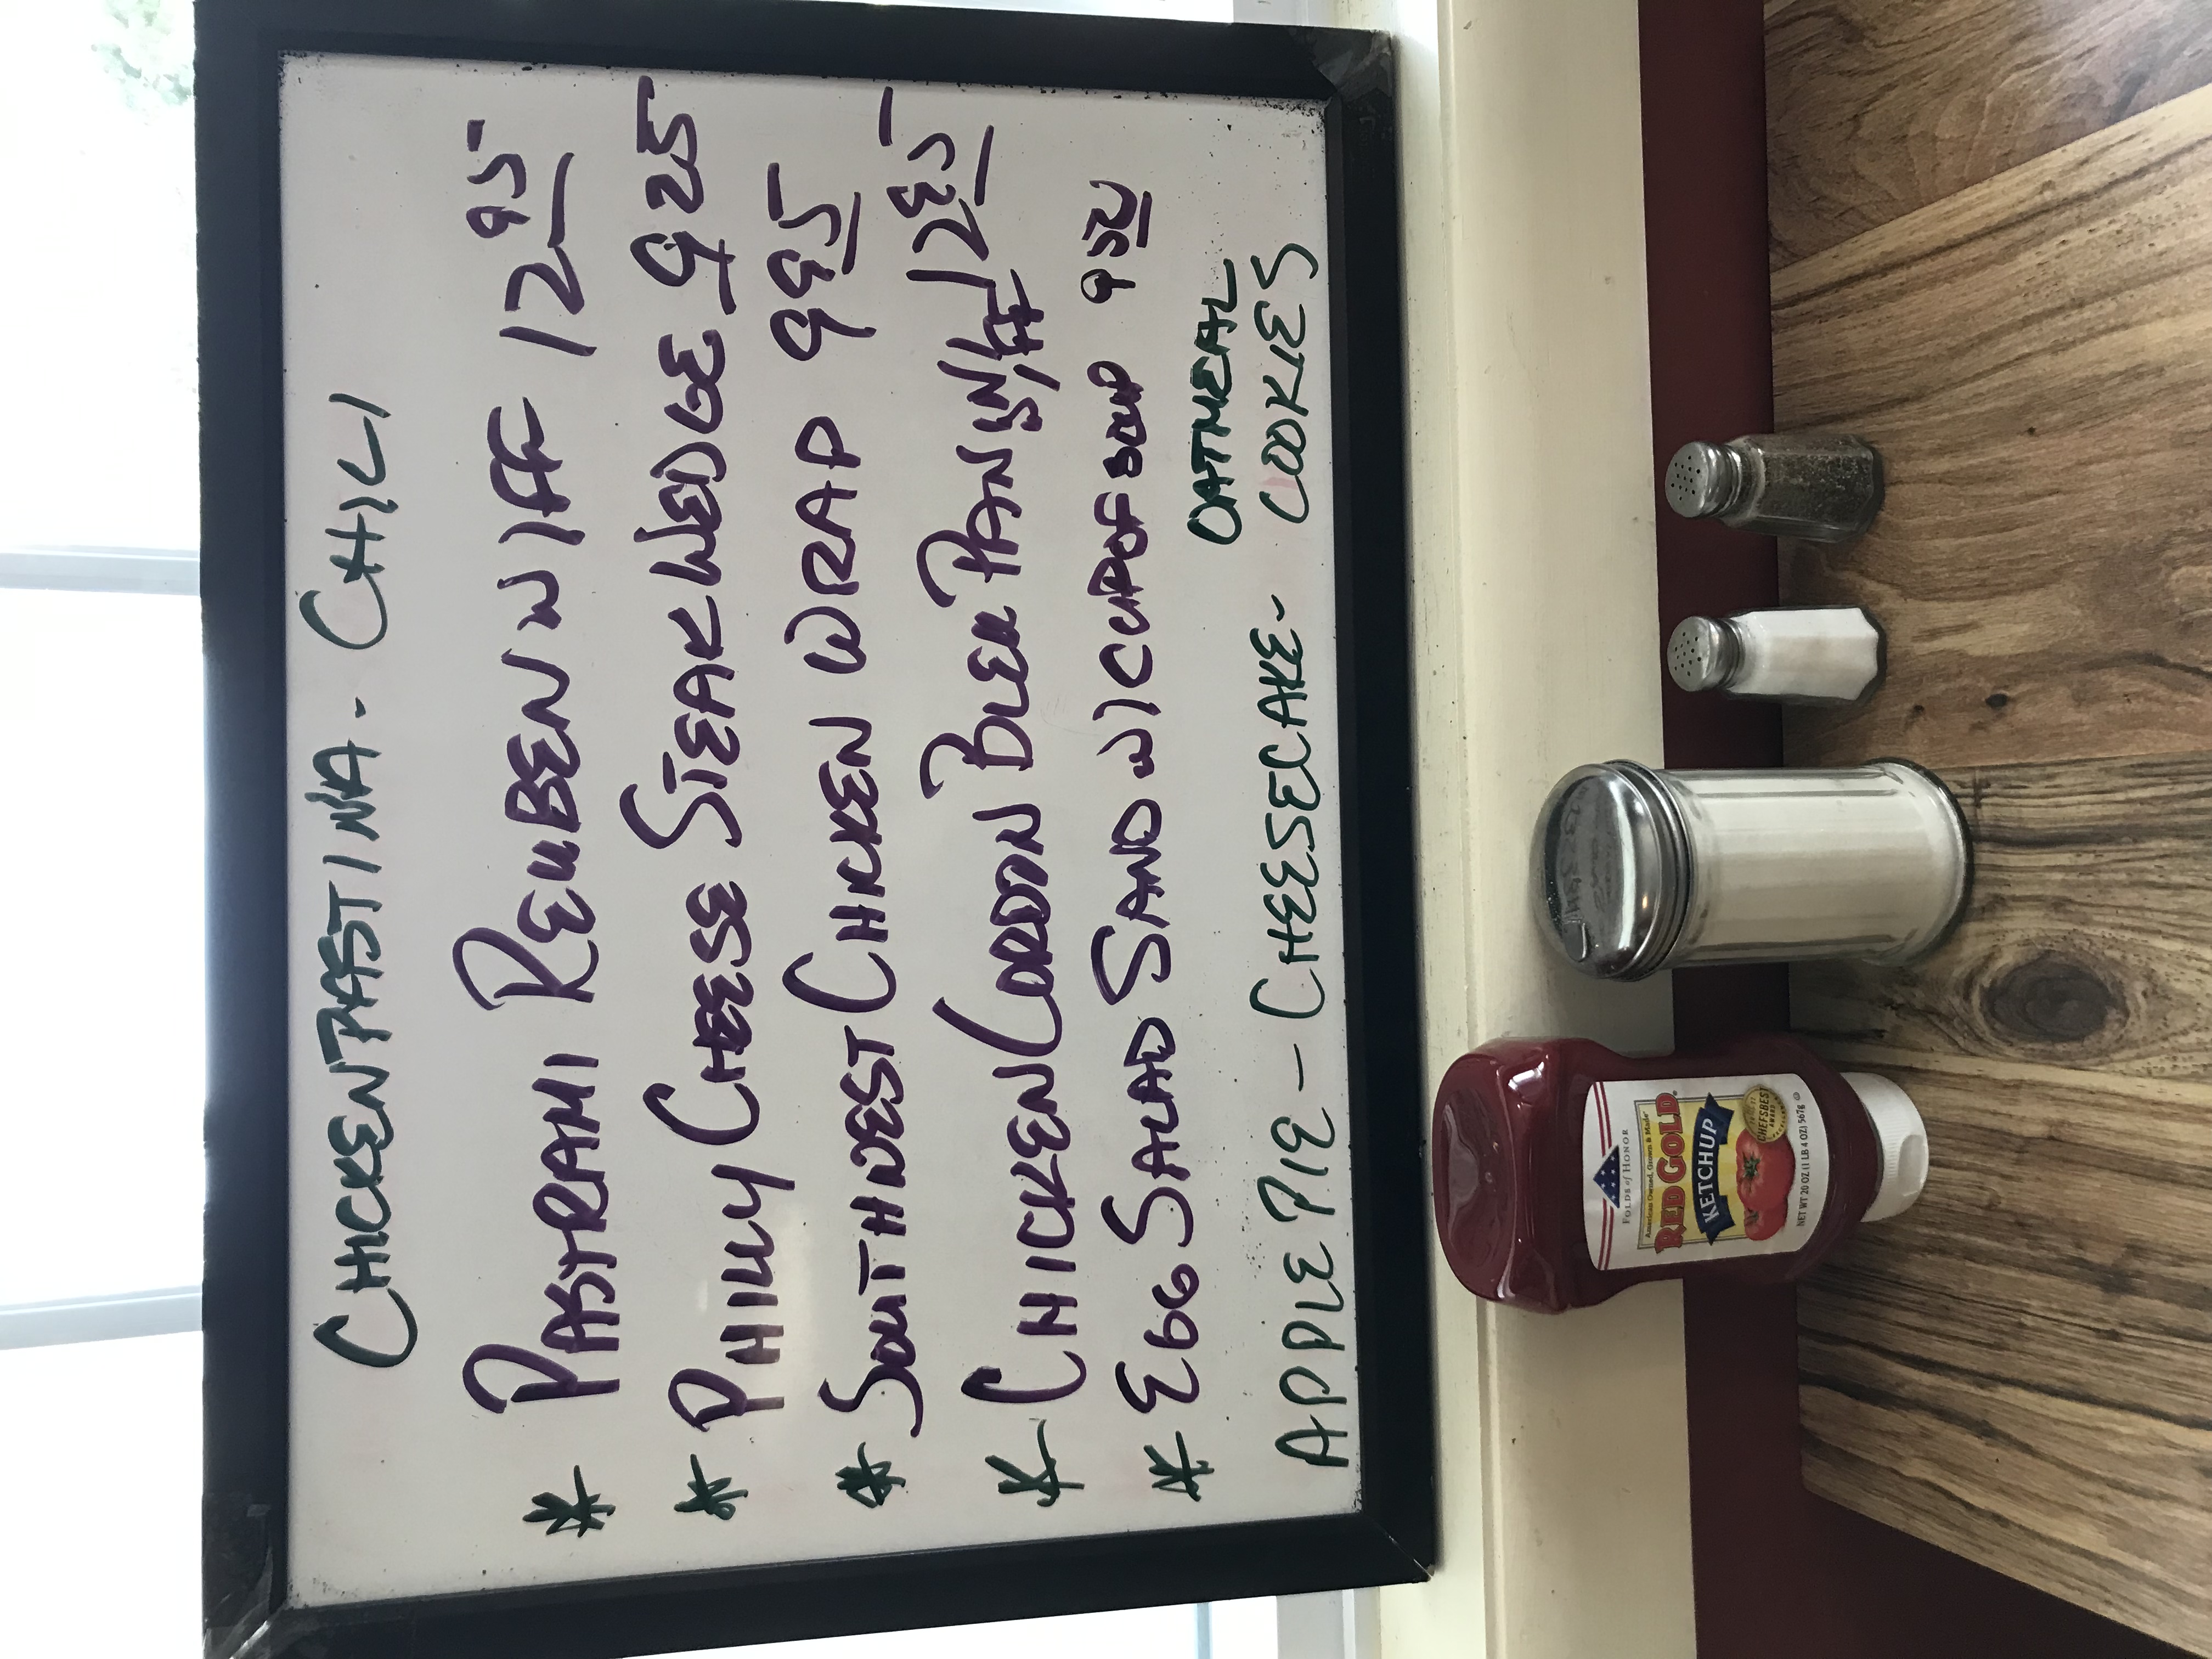 CHICKEN PASTINA - CHILI
* PASTRAMI REUBEN W/FF 12 95
* PHILLY CHEESE STEAK WEDGE 9 25
* SOUTHWEST CHICKEN WRAP 9 95
* CHICKEN CORDON BLEU PANINI 12 95
W/FF
* EGG SALAD SAND W/ CUP OF SOUP 9 50
OATMEAL
APPLE PIE - CHEESECAKE - COOKIES
FOLDS of HONOR
American Owned, Grown & Made
RED GOLD
KETCHUP
CHEFSBEST
AWARD
NET WT 20 OZ (1 LB 4 OZ) 567g